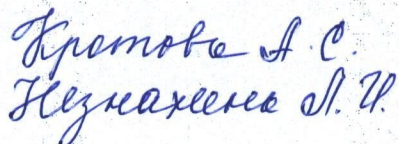 Кротова А. С.
Незнахина Л. И.